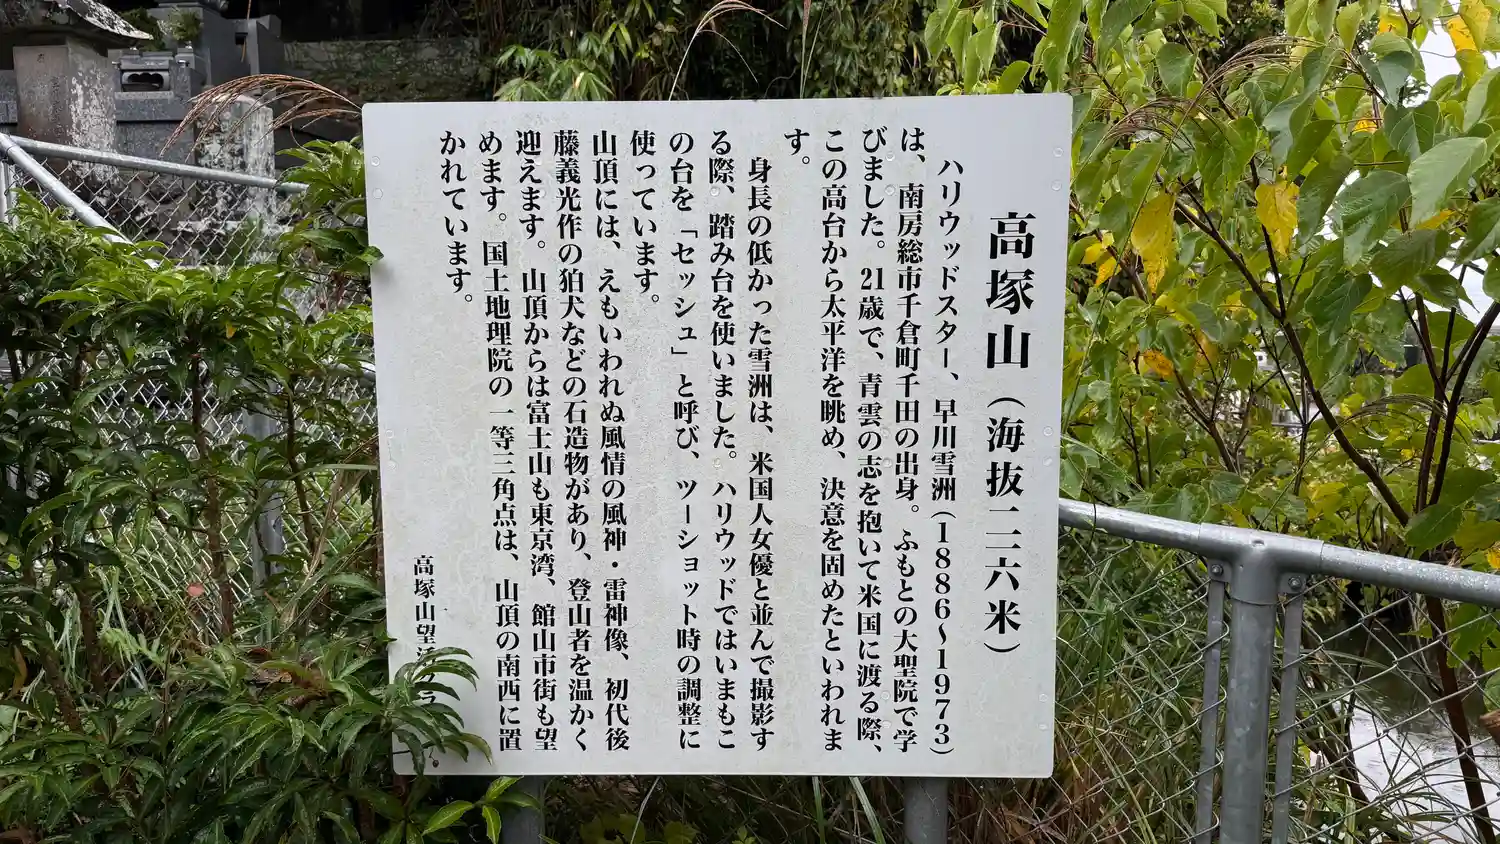 高塚山(海抜二一六米)
ハリウッドスター、早川雪洲(1886~1973)
は、南房総市千倉町千田の出身。ふもとの大聖院で学
びました。21歳で、青雲の志を抱いて米国に渡る際、
この高台から太平洋を眺め、決意を固めたといわれま
す。
身長の低かった雪洲は、米国人女優と並んで撮影す
る際、踏み台を使いました。ハリウッドではいまもこ
の台を「セッシュ」と呼び、ツーショット時の調整に
使っています。
山頂には、えもいわれぬ風情の風神・雷神像、初代後
藤義光作の狛犬などの石造物があり、登山者を温かく
迎えます。山頂からは富士山も東京湾、館山市街も望
めます。国土地理院の一等三角点は、山頂の南西に置
かれています。
高塚山望